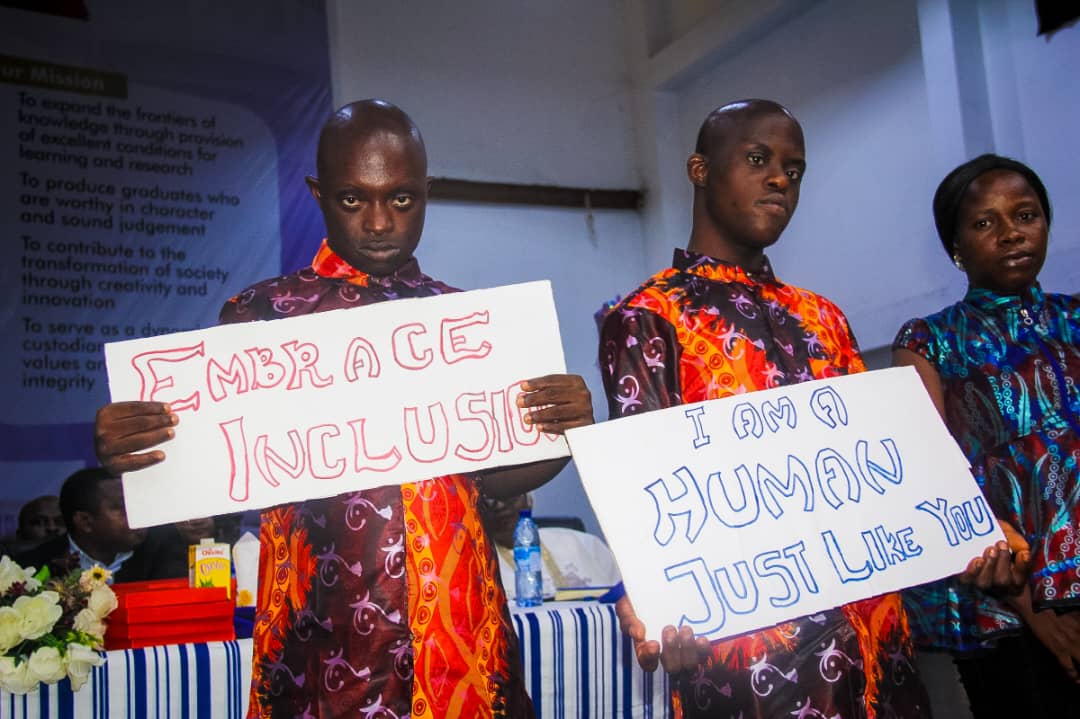 ur Mission
To expand the frontiers of
knowledge through provision
of excellent conditions for
learning and research
To produce graduates who
are worthy in character
and sound judgement
To contribute to the
transformation of society
through creativity and
innovation
To serve as a
custodian
values
integrity
EMBRACE
INCLUSION
I AM A
HUMAN
JUST LIKE YOU